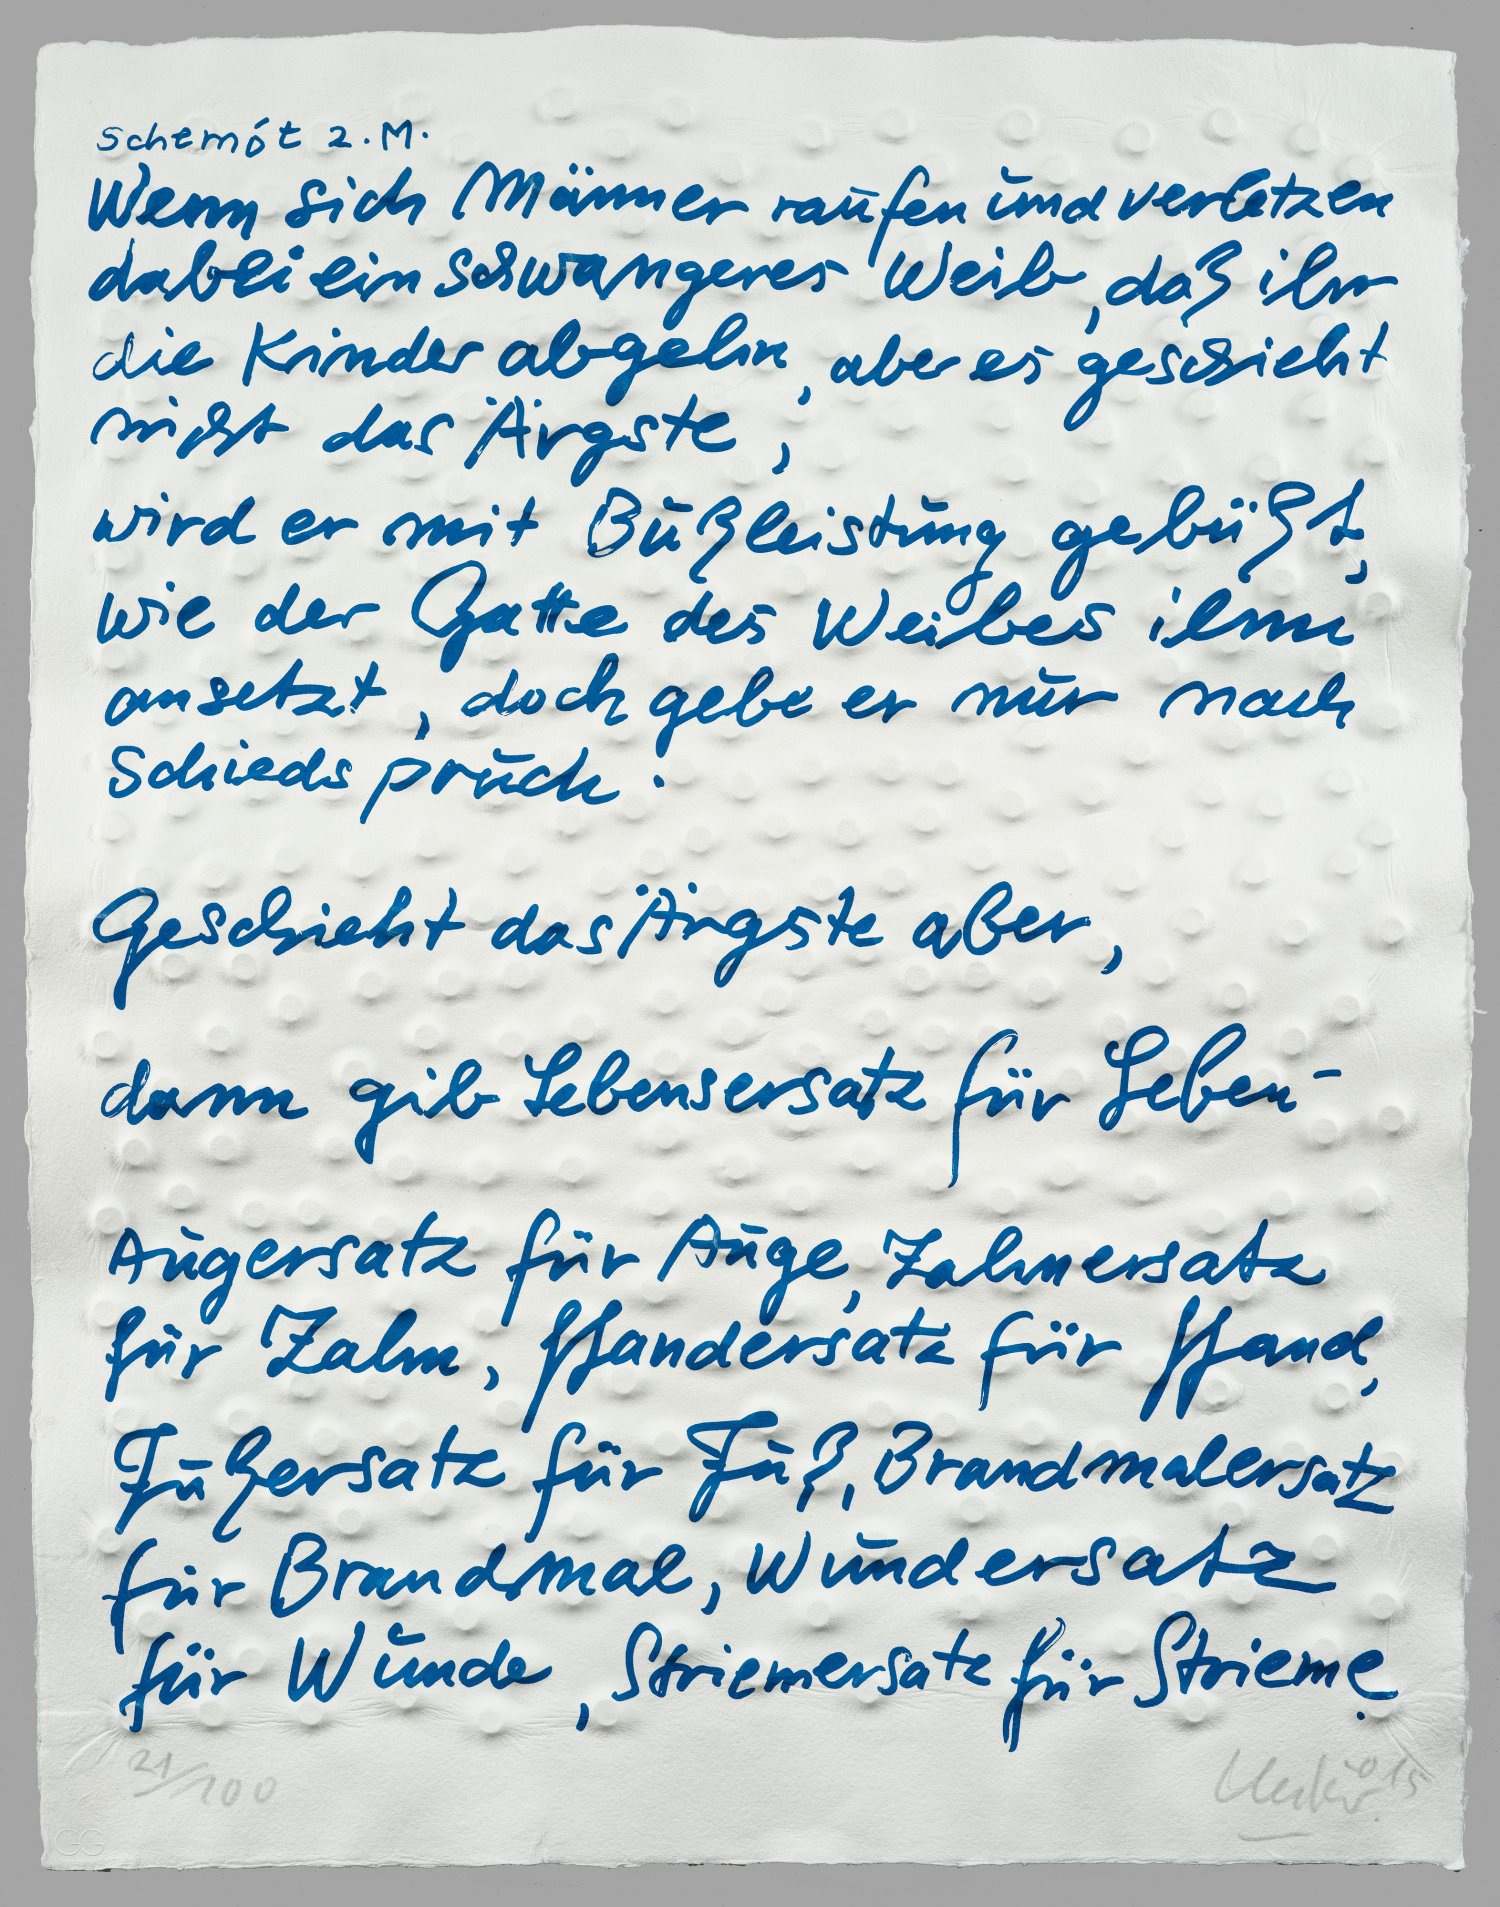 Schemót 2. M.
Wenn sich Männer raufen und verletzen
dabei ein schwangeres Weib, daß ihr
die Kinder abgehn, aber es geschieht
nicht das Ärgste,
wird er mit Bußleistung gebüßt,
wie der Gatte des Weibes ihm
ansetzt, doch gebe er nur nach
Schiedspruch.
Geschieht das Ärgste aber,
dann gib Lebensersatz für Leben –
Augersatz für Auge, Zahnersatz
für Zahn, Handersatz für Hand,
Fußersatz für Fuß, Brandmalersatz
für Brandmal, Wundersatz
für Wunde, Striemersatz für Strieme.
21/100
Uecker 015
GG